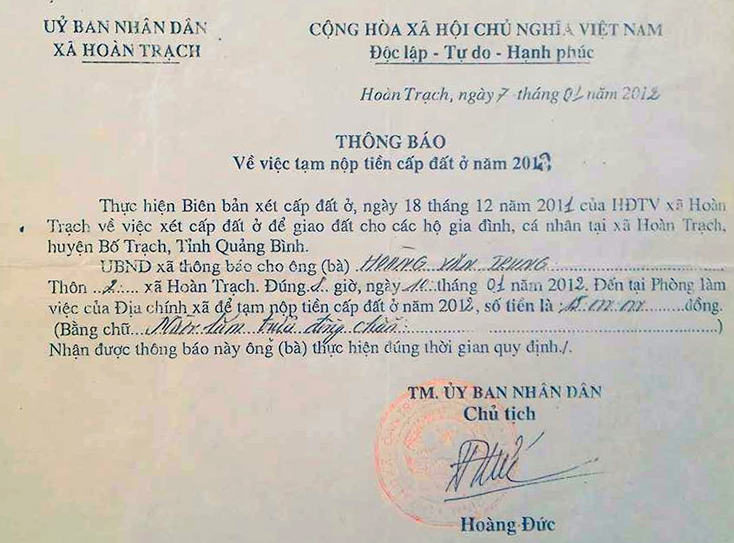 UỶ BAN NHÂN DÂN
XÃ HOÀN TRẠCH
CỘNG HÒA XÃ HỘI CHỦ NGHĨA VIỆT NAM
Độc lập - Tự do - Hạnh phúc
Hoàn Trạch, ngày 7 tháng 01 năm 2012
THÔNG BÁO
Về việc tạm nộp tiền cấp đất ở năm 2012
Thực hiện Biên bản xét cấp đất ở, ngày 18 tháng 12 năm 2011 của HĐTV xã Hoàn
Trạch về việc xét cấp đất ở để giao đất cho các hộ gia đình, cá nhân tại xã Hoàn Trạch,
huyện Bố Trạch, Tỉnh Quảng Bình.
UBND xã thông báo cho ông (bà) HOÀNG VĂN TRUNG
Thôn ..2.. xã Hoàn Trạch. Đúng giờ, ngày tháng 01 năm 2012. Đến tại Phòng làm
việc của Địa chính xã để tạm nộp tiền cấp đất ở năm 2012, số tiền là: đồng.
(Bằng chữ triệu đồng chẵn )
Nhận được thông báo này ông (bà) thực hiện đúng thời gian quy định./.
TM. ỦY BAN NHÂN DÂN
Chủ tịch
Hoàng Đức